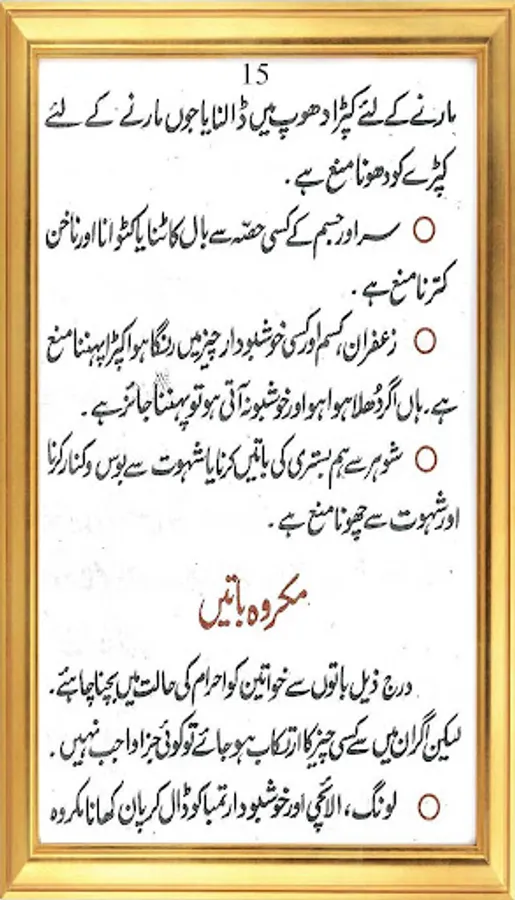 15
مارنے کے لئے کپڑا دھوپ میں ڈالنا یا جوں مارنے کے لئے
کپڑے کو دھونا منع ہے۔
○ سر اور جسم کے کسی حصّہ سے بال کاٹنا یا کٹوانا اور ناخن
کترنا منع ہے۔
○ زعفران، کسم اور کسی خوشبودار چیز میں رنگا ہوا کپڑا پہننا منع
ہے۔ ہاں اگر دُھلا ہوا ہو اور خوشبو نہ آتی ہو تو پہننا جائز ہے۔
○ شوہر سے ہم بستری کی باتیں کرنا یا شہوت سے بوس و کنار کرنا
اور شہوت سے چھونا منع ہے۔
مکروہ باتیں
درج ذیل باتوں سے خواتین کو احرام کی حالت میں بچنا چاہئے۔
لیکن اگر ان میں سے کسی چیز کا ارتکاب ہو جائے تو کوئی جزا واجب نہیں۔
○ لونگ، الائچی اور خوشبودار تمباکو ڈال کر پان کھانا مکروہ